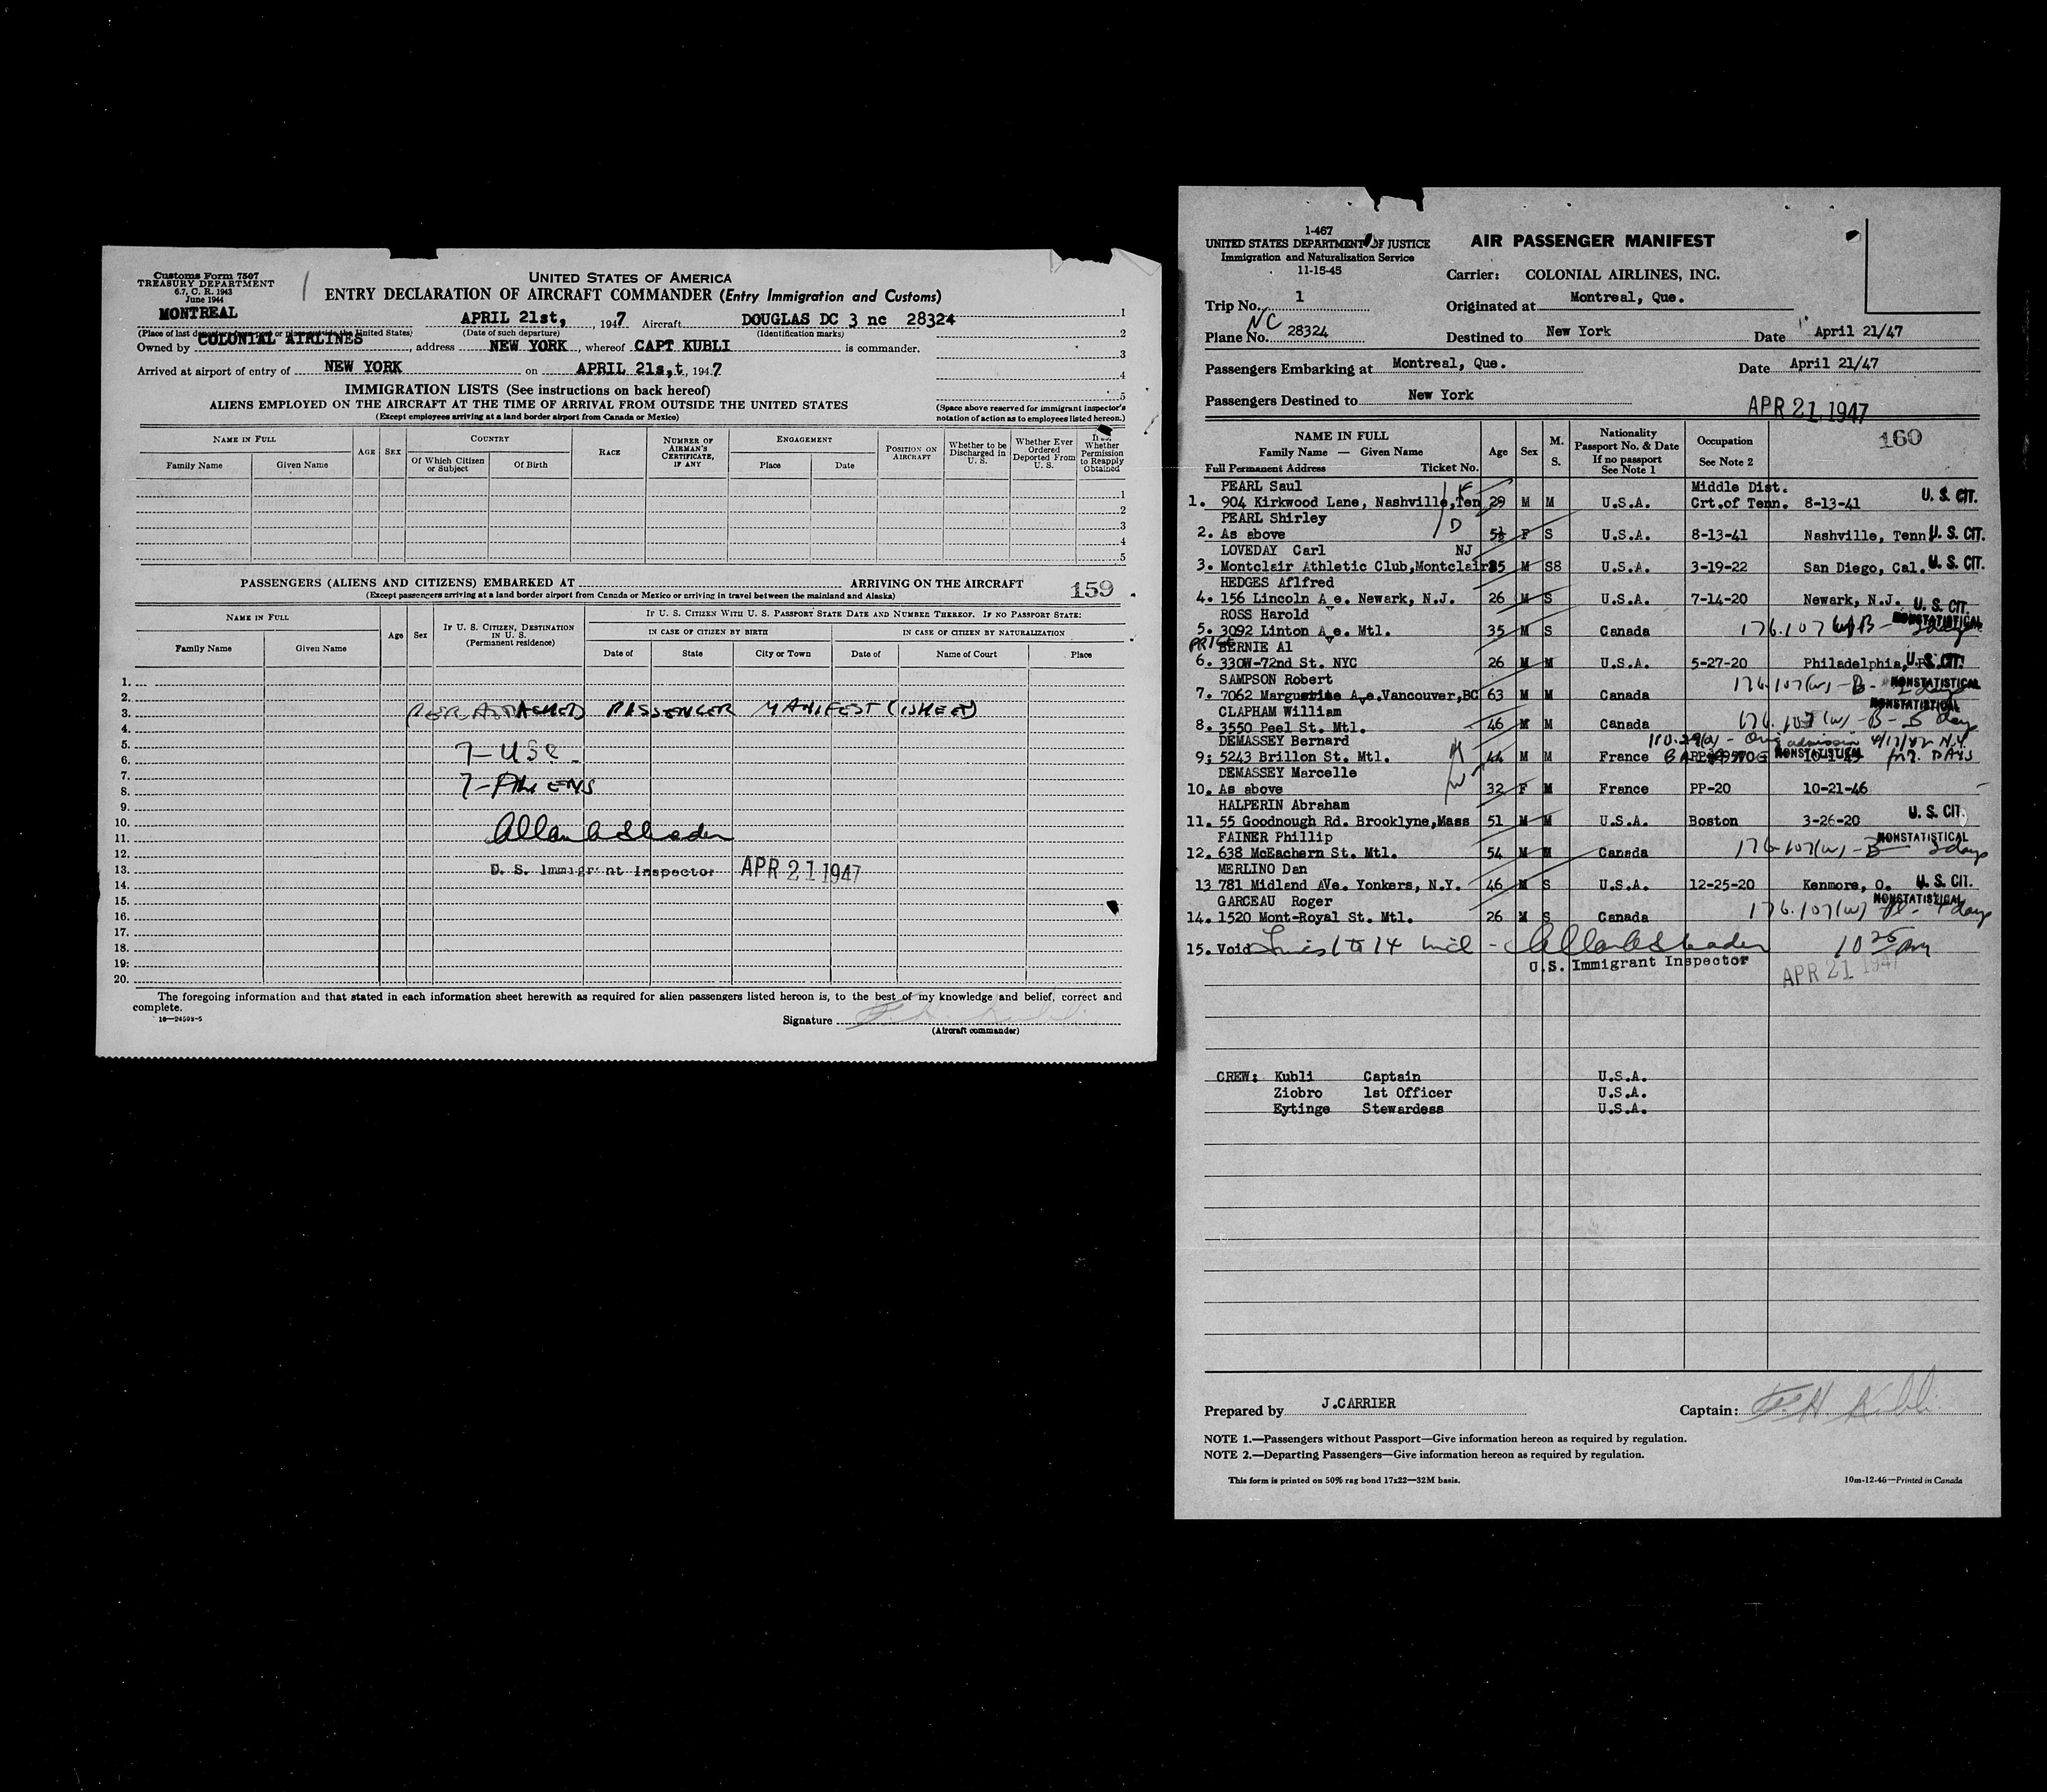 Customs Form 7507
TREASURY DEPARTMENT
6.7, C. R. 1943
June 1944
UNITED STATES OF AMERICA
ENTRY DECLARATION OF AIRCRAFT COMMANDER (Entry Immigration and Customs)
MONTREAL APRIL 21st, , 1947 Aircraft DOUGLAS DC 3 nc 28324
(Place of last departure from port or place outside the United States) (Date of such departure) (Identification marks)
Owned by COLONIAL AIRLINES, address NEW YORK, whereof CAPT KUBLI is commander.
Arrived at airport of entry of NEW YORK on APRIL 21s,t, 1947
1
2
3
4
5
(Space above reserved for immigrant inspector's notation of action as to employees listed hereon.)
IMMIGRATION LISTS (See instructions on back hereof)
ALIENS EMPLOYED ON THE AIRCRAFT AT THE TIME OF ARRIVAL FROM OUTSIDE THE UNITED STATES
(Except employees arriving at a land border airport from Canada or Mexico)
NAME IN FULL
Family Name Given Name
AGE SEX
COUNTRY
Of Which Citizen or Subject Of Birth
RACE
NUMBER OF AIRMAN'S CERTIFICATE, IF ANY
ENGAGEMENT
Place Date
POSITION ON AIRCRAFT
Whether to be Discharged in U. S.
Whether Ever Ordered Deported From U. S.
Whether Permission to Reapply Obtained
1
2
3
4
5
PASSENGERS (ALIENS AND CITIZENS) EMBARKED AT ARRIVING ON THE AIRCRAFT 159
(Except passengers arriving at a land border airport from Canada or Mexico or arriving in travel between the mainland and Alaska)
NAME IN FULL
Family Name Given Name
Age Sex
IF U. S. CITIZEN, DESTINATION IN U. S.
(Permanent residence)
IF U. S. CITIZEN WITH U. S. PASSPORT STATE DATE AND NUMBER THEREOF. IF NO PASSPORT STATE:
IN CASE OF CITIZEN BY BIRTH IN CASE OF CITIZEN BY NATURALIZATION
Date of State City or Town Date of Name of Court Place
1.
2.
3. PER ATTACHED PASSENGER MANIFEST (1 SHEET)
4.
5. 7-USC
6.
7.
8. 7-ALIENS
9.
10.
11.
12.
13. U. S. Immigrant Inspector APR 21 1947
14.
15.
16.
17.
18.
19.
20.
The foregoing information and that stated in each information sheet herewith as required for alien passengers listed hereon is, to the best of my knowledge and belief, correct and
complete.
Signature F.H. Kubli
(Aircraft commander)
1-467
UNITED STATES DEPARTMENT OF JUSTICE
Immigration and Naturalization Service
11-15-45
AIR PASSENGER MANIFEST
Carrier: COLONIAL AIRLINES, INC.
Trip No. 1 Originated at Montreal, Que.
Plane No. NC 28324 Destined to New York Date April 21/47
Passengers Embarking at Montreal, Que. Date April 21/47
Passengers Destined to New York
APR 21 1947
160
NAME IN FULL
Family Name — Given Name
Full Permanent Address Ticket No.
Age Sex M. S.
Nationality
Passport No. & Date
If no passport
See Note 1
Occupation
See Note 2
PEARL Saul Middle Dist.
1. 904 Kirkwood Lane, Nashville,Ten 29 M M U.S.A. Crt.of Tenn. 8-13-41 U. S. CIT.
PEARL Shirley
2. As above F S U.S.A. 8-13-41 Nashville, Tenn U. S. CIT.
LOVEDAY Carl NJ
3. Montclair Athletic Club,Montclair 25 M S8 U.S.A. 3-19-22 San Diego, Cal. U. S. CIT.
HEDGES Aflfred
4. 156 Lincoln A e. Newark, N.J. 26 M S U.S.A. 7-14-20 Newark, N.J. U. S. CIT.
ROSS Harold
5. 3092 Linton Ave. Mtl. 35 M S Canada 176.107 NONSTATISTICAL
PRICE BERNIE Al
6. 330W-72nd St. NYC 26 M M U.S.A. 5-27-20 Philadelphia, U. S. CIT.
SAMPSON Robert
7. 7062 Marguerite Ave.Vancouver,BC 63 M M Canada 176.107(w) - B - NONSTATISTICAL
CLAPHAM William
8. 3550 Peel St. Mtl. 46 M M Canada 176.107(w) - B - 5 days NONSTATISTICAL
DEMASSEY Bernard
9; 5243 Brillon St. Mtl. 44 M M France NONSTATISTICAL
DEMASSEY Marcelle
10. As above 32 F M France PP-20 10-21-46
HALPERIN Abraham
11. 55 Goodnough Rd. Brooklyne,Mass 51 M M U.S.A. Boston 3-26-20 U. S. CIT.
FAINER Phillip
12. 638 McEachern St. Mtl. 54 M M Canada 176.107(w) - B - 2 days NONSTATISTICAL
MERLINO Dan
13 781 Midland AVe. Yonkers, N.Y. 46 M S U.S.A. 12-25-20 Kenmore, O. U. S. CIT.
GARCEAU Roger
14. 1520 Mont-Royal St. Mtl. 26 M S Canada 176.107(w) NONSTATISTICAL
15. Void Lines 1 to 14 incl -
U.S. Immigrant Inspector APR 21 1947
CREW: Kubli Captain U.S.A.
Ziobro 1st Officer U.S.A.
Eytinge Stewardess U.S.A.
Prepared by J.CARRIER Captain: F.H. Kubli
NOTE 1.—Passengers without Passport—Give information hereon as required by regulation.
NOTE 2.—Departing Passengers—Give information hereon as required by regulation.
This form is printed on 50% rag bond 17x22—32M basis. 10m-12-46—Printed in Canada